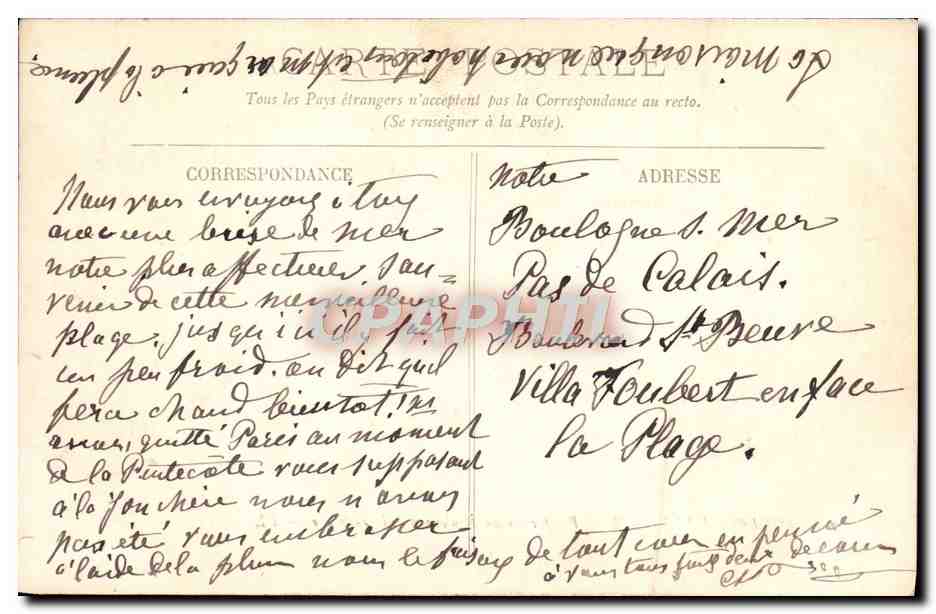 La maison que nous habitons est marquée à la plume.
CARTE POSTALE
Tous les Pays étrangers n'acceptent pas la Correspondance au recto.
(Se renseigner à la Poste).
CORRESPONDANCE
Nous vous envoyons à tous
avec une brise de mer
notre plus affectueux Sou=
venir de cette merveilleuse
plage. jusqu'ici il fait
un peu froid. on dit qu'il
fera chaud bientôt! ns
avons quitté Paris au moment
de la Pentecôte vous supposant
à la Jonchère nous n'avons
pas été vous embrasser
à l'aide de la plume nous le faisons de tout coeur en pensée
à vous tous
de coeur
ADRESSE
Notre
Boulogne s. Mer
Pas de Calais.
Boulevard Ste Beuve
Villa Foubert en face
la Plage.
CPAPHIL